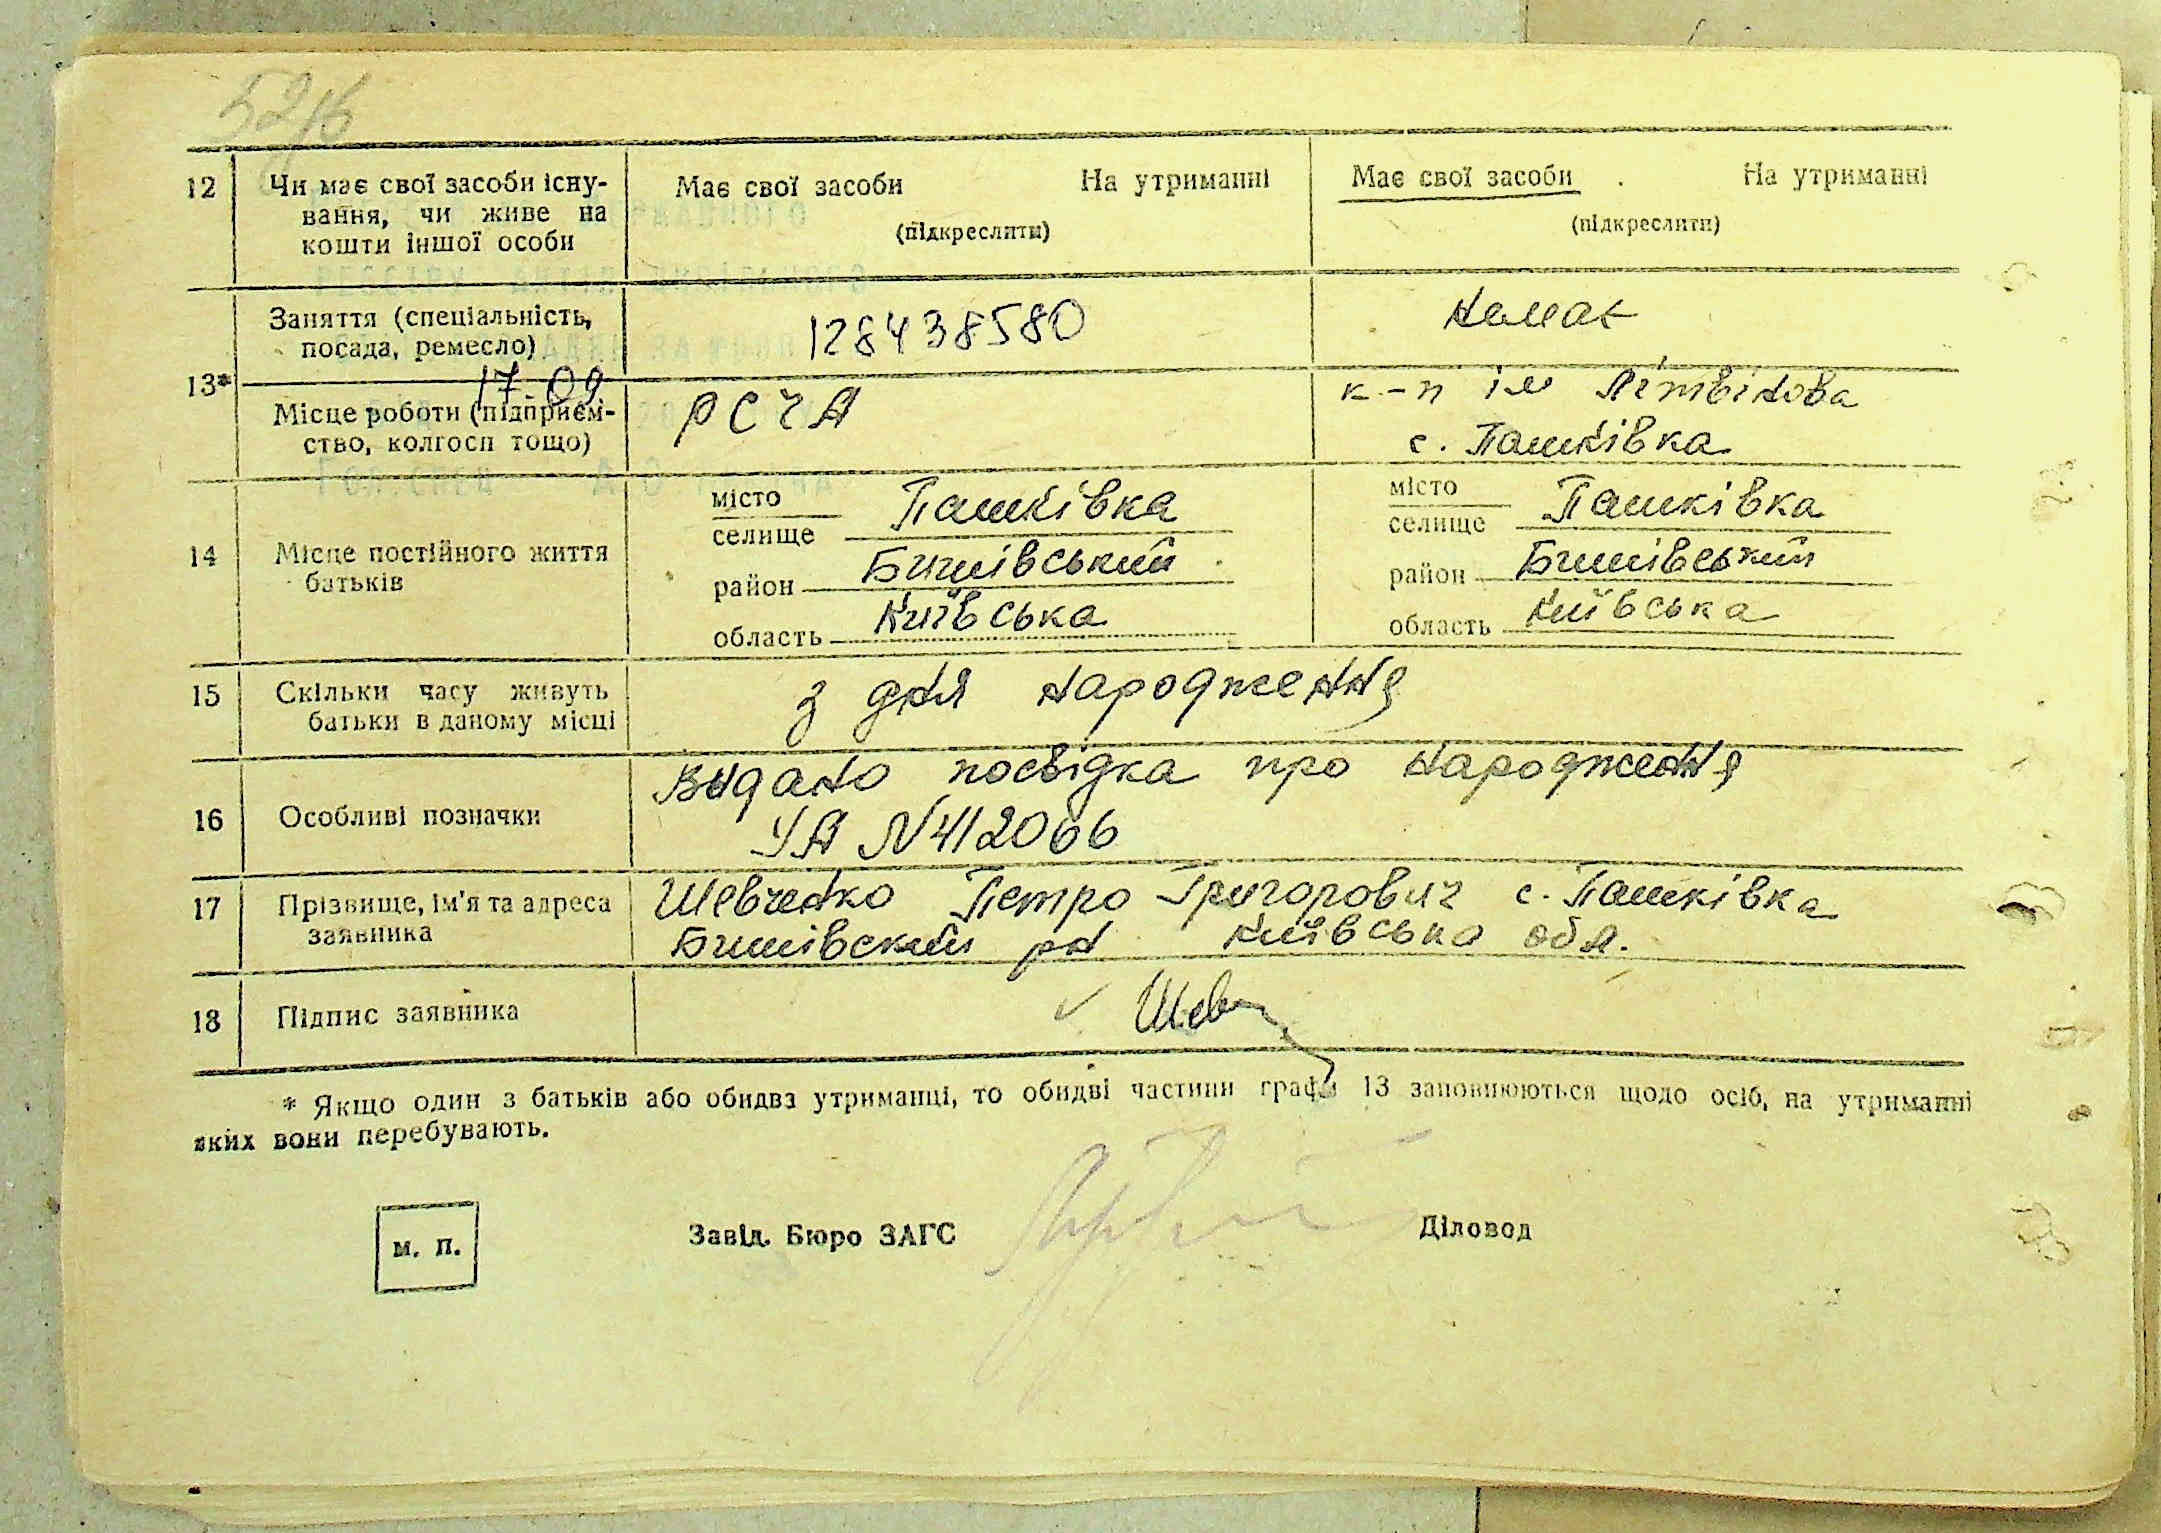 52/б
12 Чи має свої засоби існу- Має свої засоби На утриманні Має свої засоби На утриманні
вання, чи живе на (підкреслити) (підкреслити)
кошти іншої особи
Заняття (спеціальність, 128438580
посада, ремесло)
13* 17 09
Місце роботи (підприєм- РСЧА к-п ім Літвінова
ство, колгосп тощо) с. Пашківка
14 Місце постійного життя
батьків
місто Пашківка місто Пашківка
селище селище
район Бишівський район Бишівський
область Київська область Київська
15 Скільки часу живуть з дня народження
батьки в даному місці
16 Особливі позначки Видано посвідка про народження
УА N412066
17 Прізвище, ім'я та адреса Шевченко Петро Григорович с. Пашківка
заявника Бишівский рн Київська обл.
18 Підпис заявника Шев
* Якщо один з батьків або обидва утриманці, то обидві частини графи 13 заповнюються щодо осіб, на утриманні
яких вони перебувають.
м. п. Завід. Бюро ЗАГС Діловод